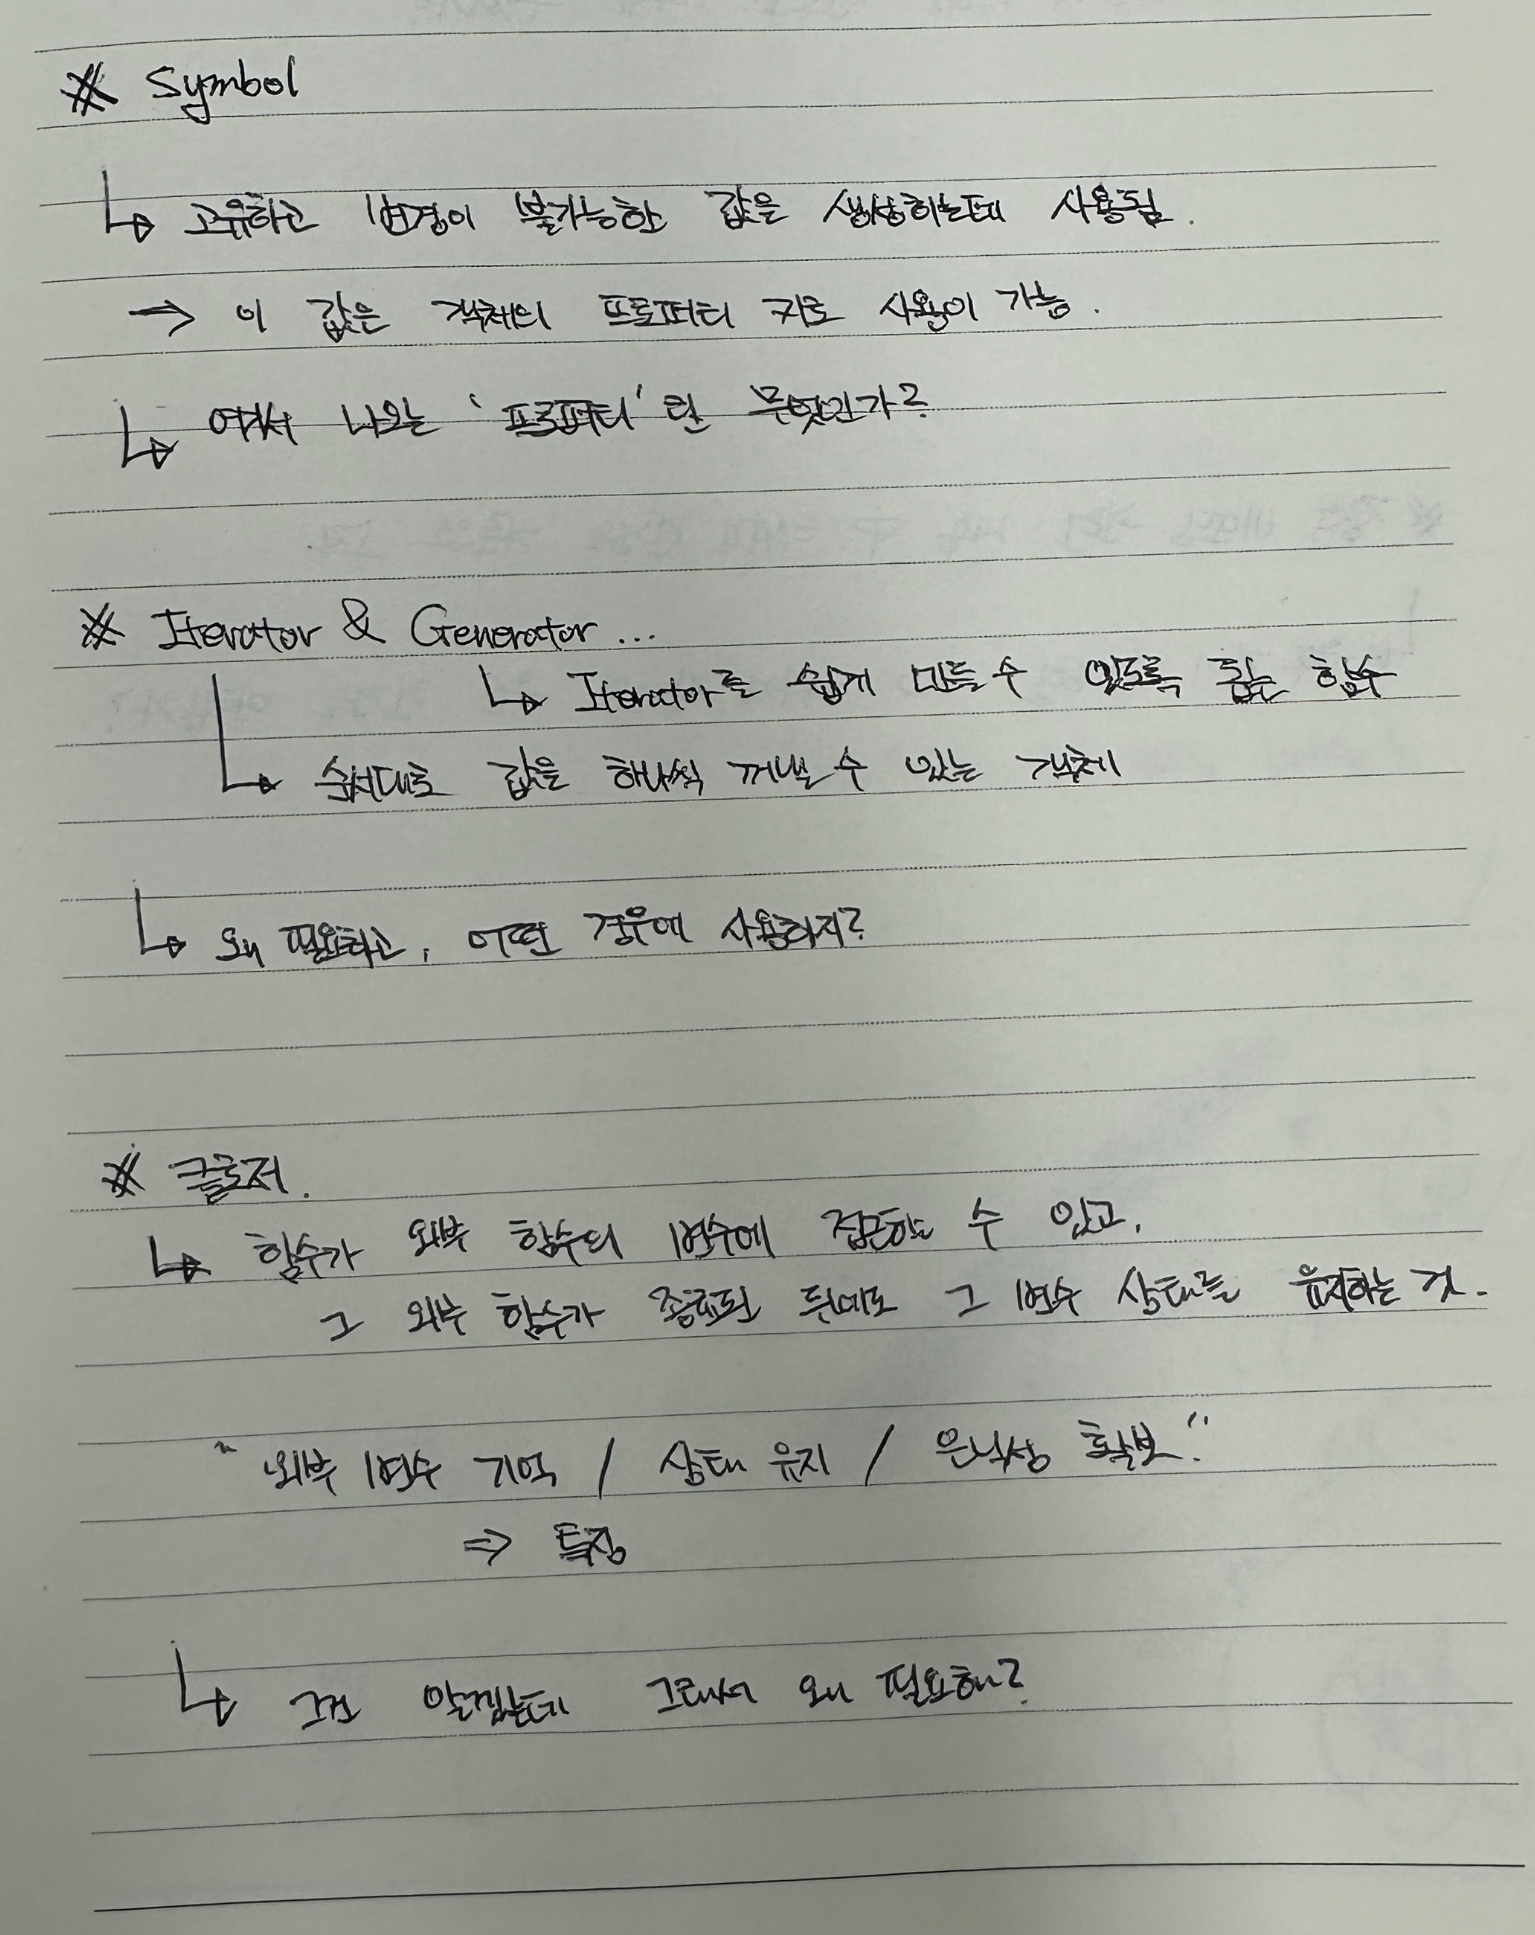 ※ Symbol
↳ 고유하고 변경이 불가능한 값을 생성하는데 사용됨.
→ 이 값은 객체의 프로퍼티 키로 사용이 가능.
↳ 여기서 나오는 '프로퍼티'란 무엇인가?
※ Iterator & Generator ...
↳ Iterator를 쉽게 만들 수 있도록 돕는 함수
↳ 순서대로 값을 하나씩 꺼낼 수 있는 객체
↳ 왜 필요하고, 어떤 경우에 사용하지?
※ 클로저.
↳ 함수가 외부 함수의 변수에 접근할 수 있고,
그 외부 함수가 종료된 뒤에도 그 변수 상태를 유지하는 것.
"외부 변수 기억 / 상태 유지 / 은닉성 확보."
⇒ 특징
↳ 그건 알겠는데 그래서 왜 필요해?